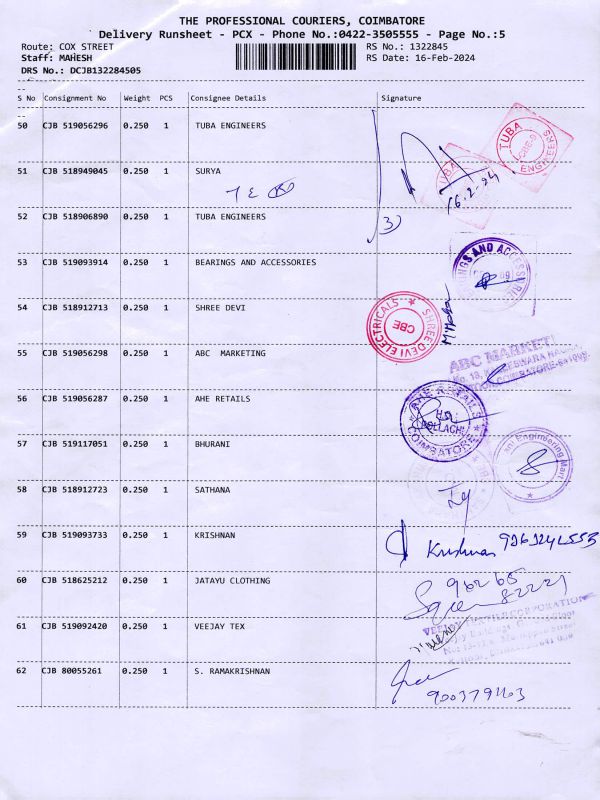 THE PROFESSIONAL COURIERS, COIMBATORE
Delivery Runsheet - PCX - Phone No.:0422-3505555 - Page No.:5
Route: COX STREET RS No.: 1322845
Staff: MAHESH RS Date: 16-Feb-2024
DRS No.: DCJB132284505
S No Consignment No Weight PCS Consignee Details Signature
50 CJB 519056296 0.250 1 TUBA ENGINEERS
TUBA ENGINEERS
51 CJB 518949045 0.250 1 SURYA
16.2.24
52 CJB 518906890 0.250 1 TUBA ENGINEERS
3)
53 CJB 519093914 0.250 1 BEARINGS AND ACCESSORIES
54 CJB 518912713 0.250 1 SHREE DEVI
SHREE DEVI ELECTRICALS CBE
55 CJB 519056298 0.250 1 ABC MARKETING
ABC MARKETI
56 CJB 519056287 0.250 1 AHE RETAILS
COIMBATORE
57 CJB 519117051 0.250 1 BHURANI
58 CJB 518912723 0.250 1 SATHANA
59 CJB 519093733 0.250 1 KRISHNAN
Krishnan
60 CJB 518625212 0.250 1 JATAYU CLOTHING
61 CJB 519092420 0.250 1 VEEJAY TEX
62 CJB 80055261 0.250 1 S. RAMAKRISHNAN